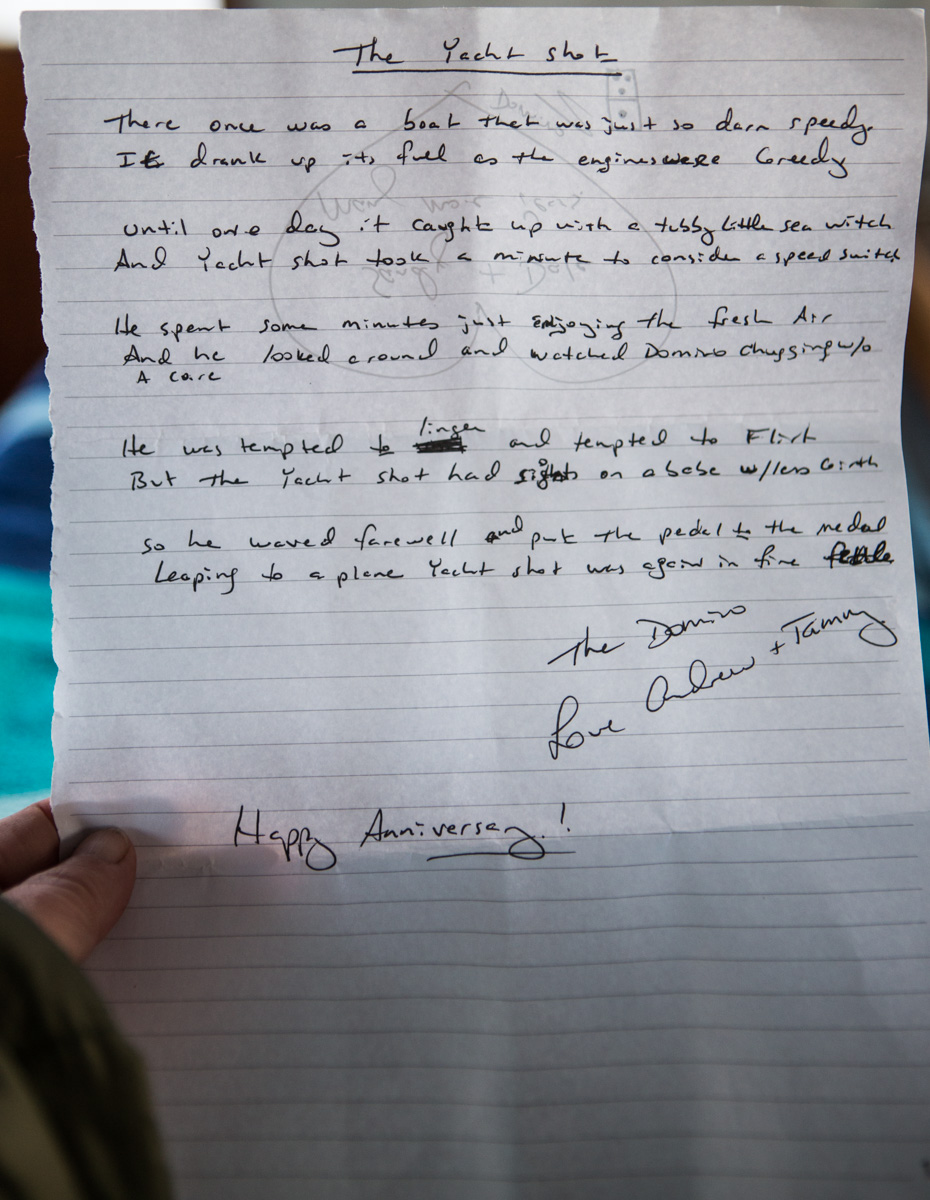 The Yacht shot
There once was a boat that was just so darn speedy.
It drank up its fuel as the engines were Greedy
Until one day it caught up with a tubby little sea witch
And Yacht shot took a minute to consider a speed switch
He spent some minutes just enjoying the fresh Air
And he looked around and watched Domino chugging w/o
A care
He was tempted to linger and tempted to Flirt
But the Yacht shot had sights on a babe w/less Girth
So he waved farewell and put the pedal to the medal
Leaping to a plane Yacht shot was again in fine fettle
The Domino
Love Andrew + Tammy
Happy Anniversay!